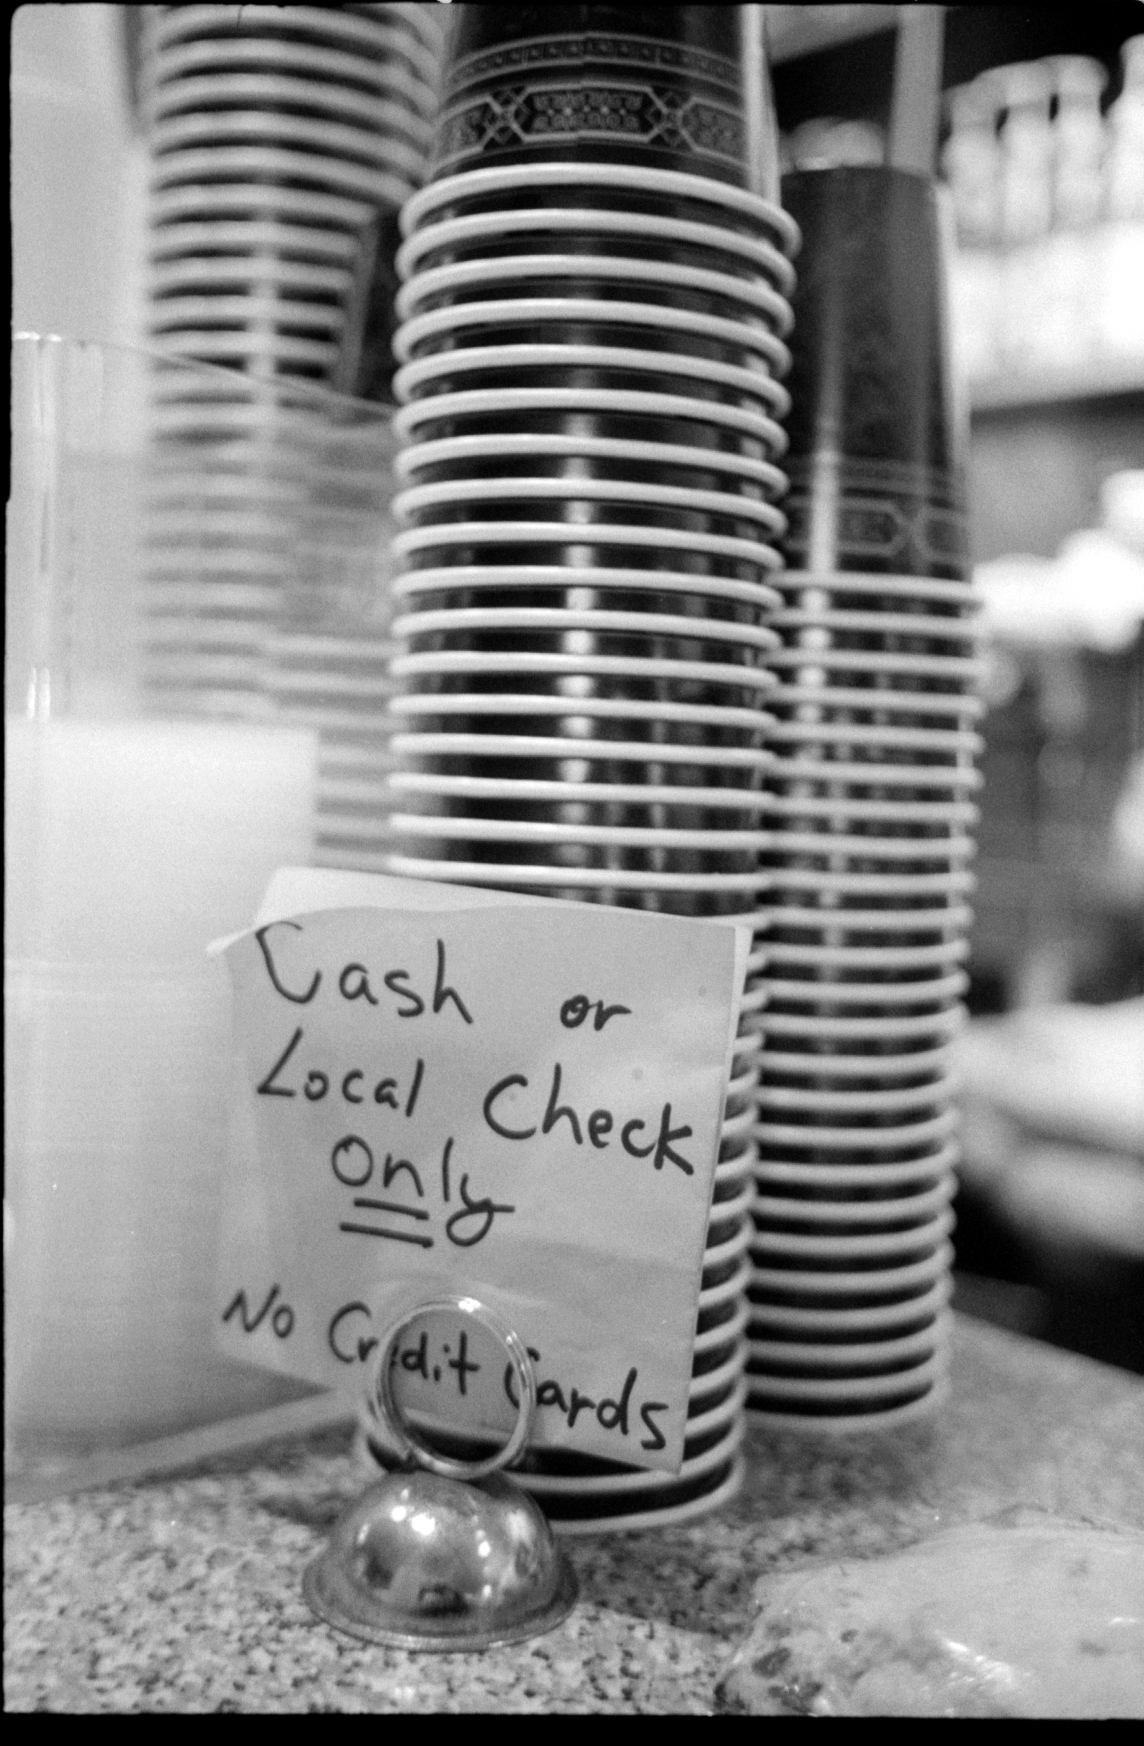 Cash or
Local Check
Only
No Credit Cards